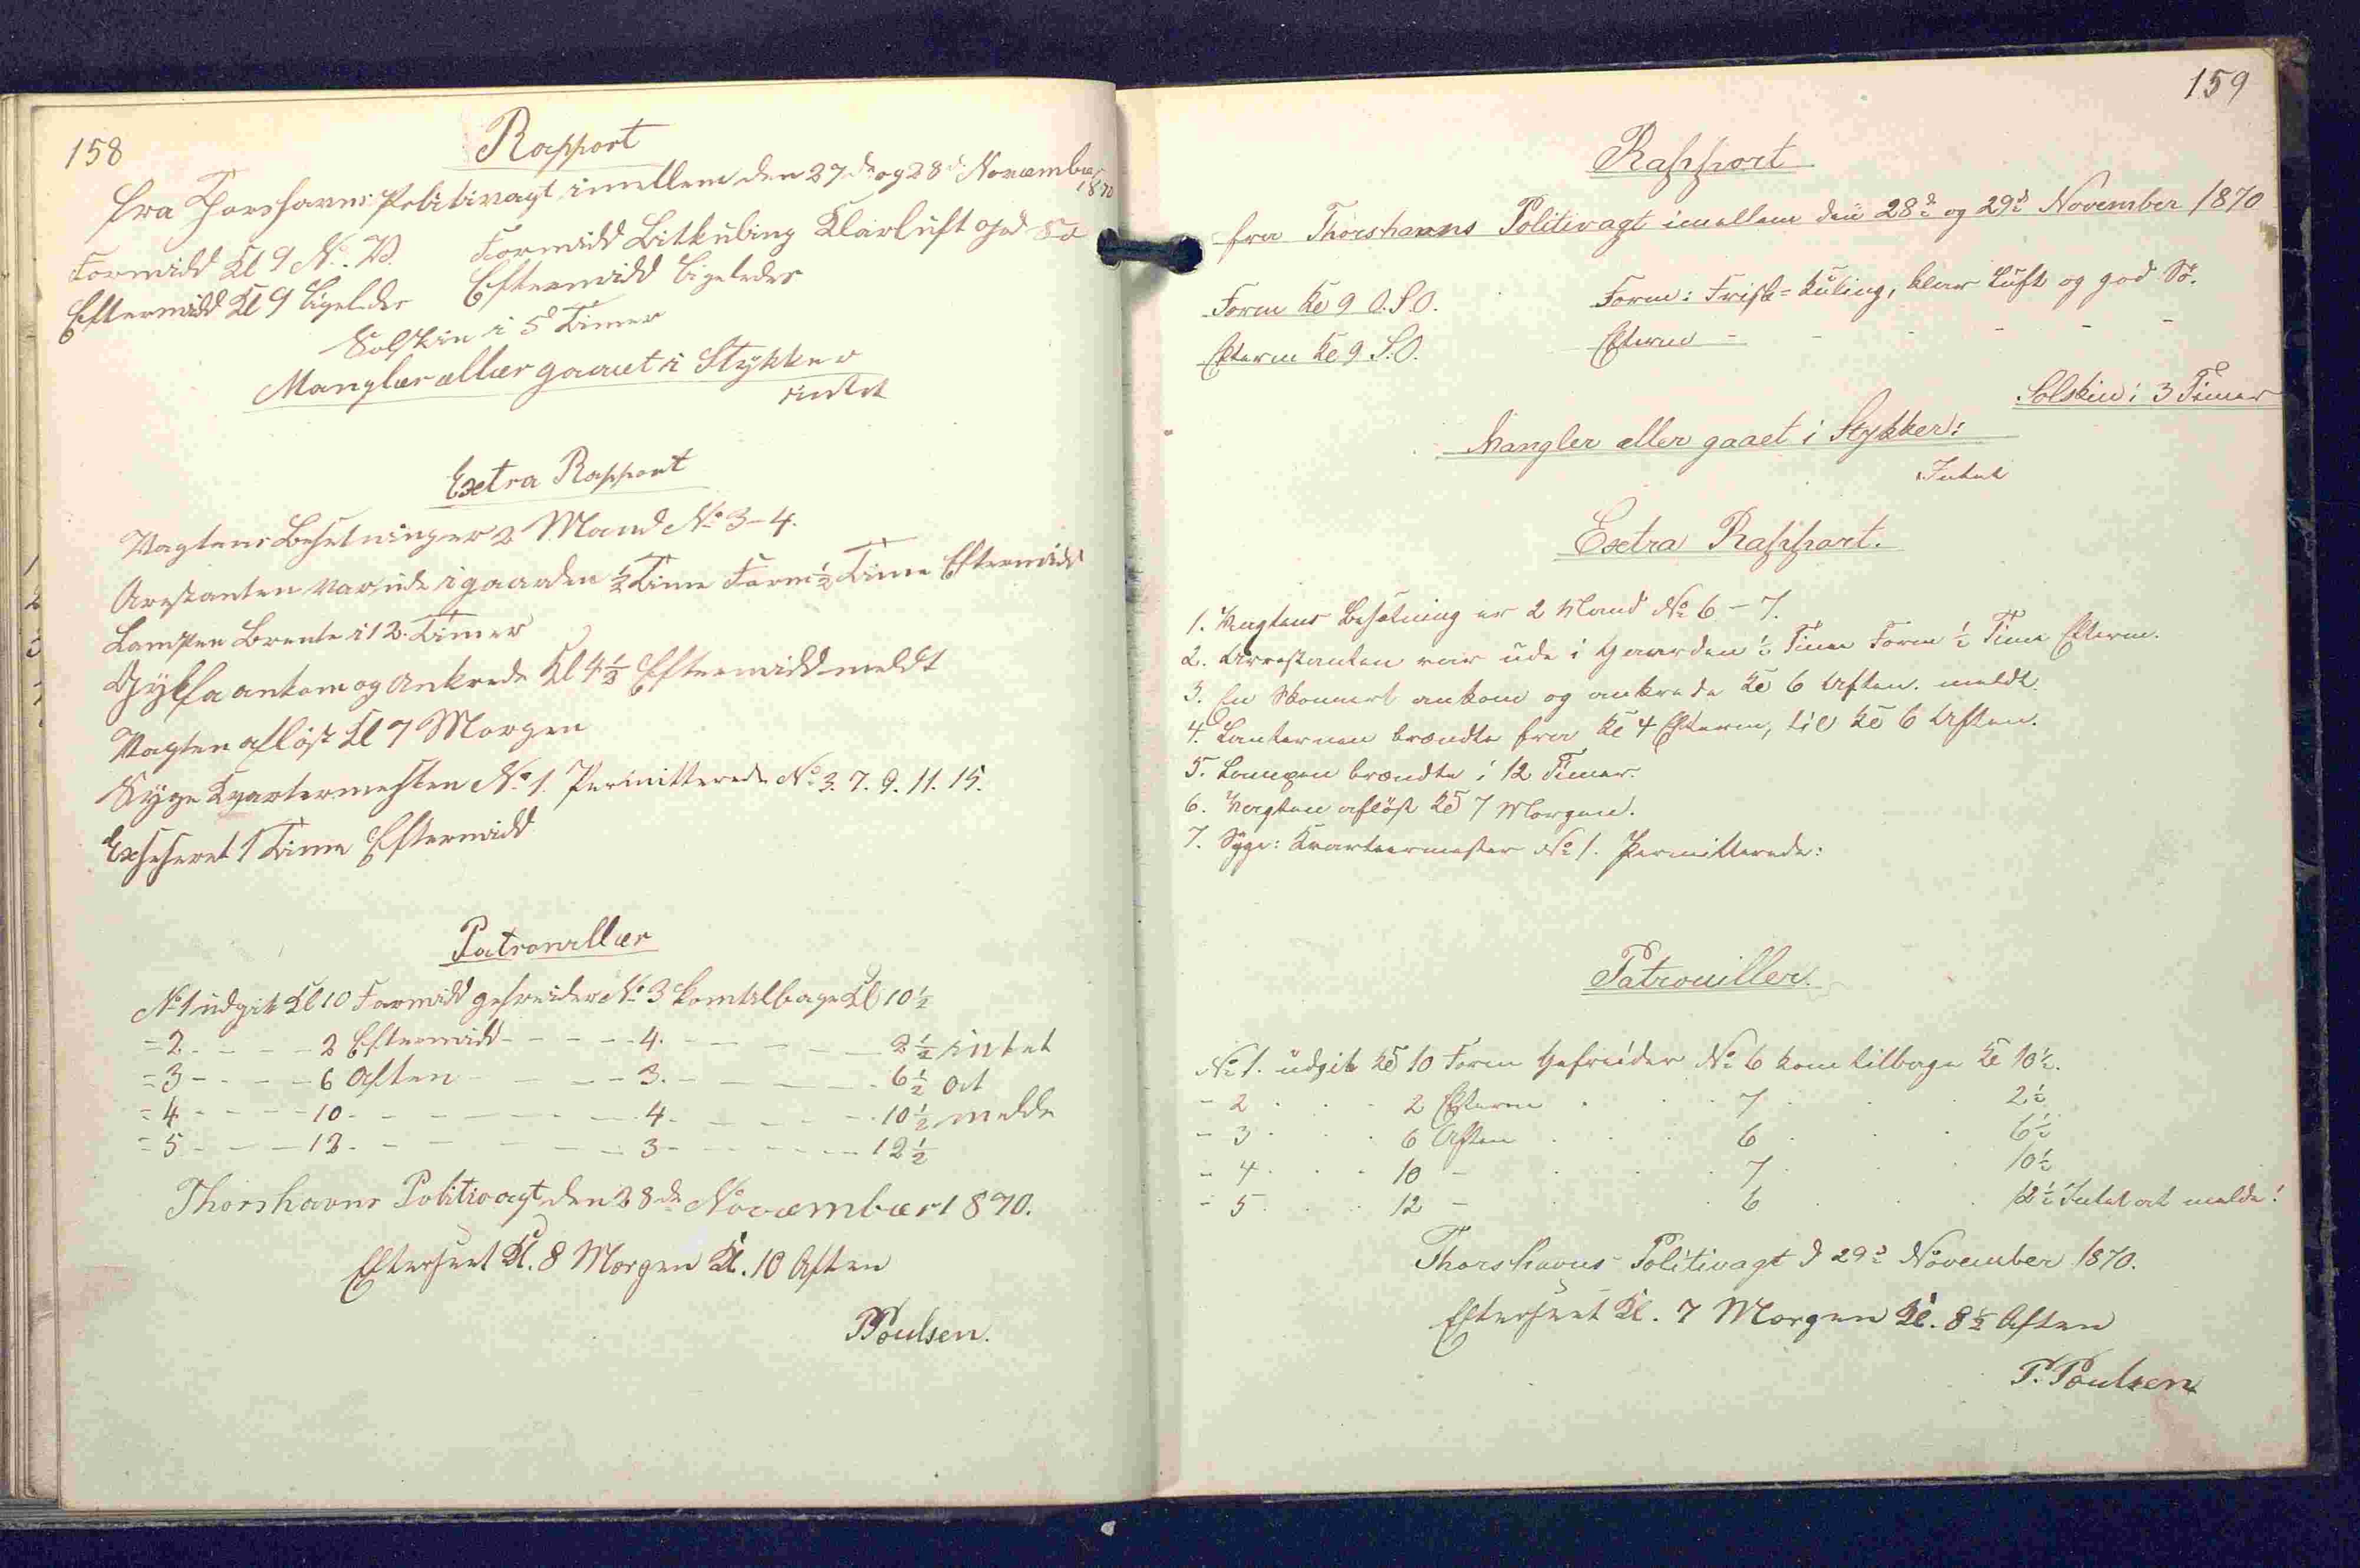 158
Rapport
fra Thorshavns Politivagt imellem den 27de og 28de November
1870
Formidd Kl 9 N. V. Formidd Litkuling Klarluft god Sø
Eftermidd Kl 9 ligeledes Eftermidd ligeledes
Solskin i 5 Timer
Manglær ællær gaaet i Stykker
intet
Extra Rapport
Vagtens Besetning er 2 Mand No 3-4.
Arestanten var ude i gaarden ½ Time Form ½ Time Eftermidd
Lampen Brente i 12 Timer
Gylfa ankom og Ankrede Kl 4½ Eftermidd meldt
Vagten afløst Kl 7 Morgen
Syge Kvartermesten No 1. Permitterede No 3. 7. 9. 11. 15.
Exseseret 1 Time Eftermidd
Patronillær
No 1 udgik Kl 10 Formidd gefreider No 3 kom tilbage Kl 10½
= 2 - - - - 2 Eftermidd - - - - 4. - - - - 2½ intet
= 3 - - - - 6 Aften - - - - 3. - - - - 6½ at
= 4 - - - - 10. - - - - 4. - - - - 10½ melde
= 5 - - - - 12. - - - - 3 - - - - 12½
Thorshavns Politivagt den 28de Novæmbær 1870.
Efterseet Kl. 8 Morgen Kl. 10 Aften
PPoulsen.
159
Rapport
fra Thorshavns Politivagt imellem den 28de og 29de November 1870
Form Kl 9 O.S.O. Form: Frisk=Kuling, klar Luft og god Sö.
Efterm Kl 9 S.O. Efterm - - - - - -
Solskin i 3 Timer
Mangler eller gaaet i Stykker:
Intet
Extra Rapport.
1. Vagtens Besætning er 2 Mand No 6 - 7.
2. Arrestanten var ude i Gaarden ½ Time Form ½ Time Efterm.
3. En Skonnert ankom og ankrede Kl 6 Aften. meldt.
4. Lanternen brændte fra Kl 4 Efterm, til Kl 6 Aften.
5. Lampen brændte i 12 Timer.
6. Vagten aflöst Kl 7 Morgen.
7. Syge: Kvarteermester No 1. Permitterede:
Patrouiller.
No 1. udgik Kl 10 Form Gefreider No 6 kom tilbage Kl 10½.
- 2 . . . 2 Efterm . . . 7 . . . 2½
- 3 . . . 6 Aften . . . 6 . . . 6½
- 4 . . . 10 - . . . 7 . . . 10½
- 5 . . . 12 - . . . 6 . . . 12½ Intet at melde!
Thorshavns Politivagt d 29d November 1870.
Efterseet Kl. 7 Morgen Kl. 8½ Aften
P. Poulsen